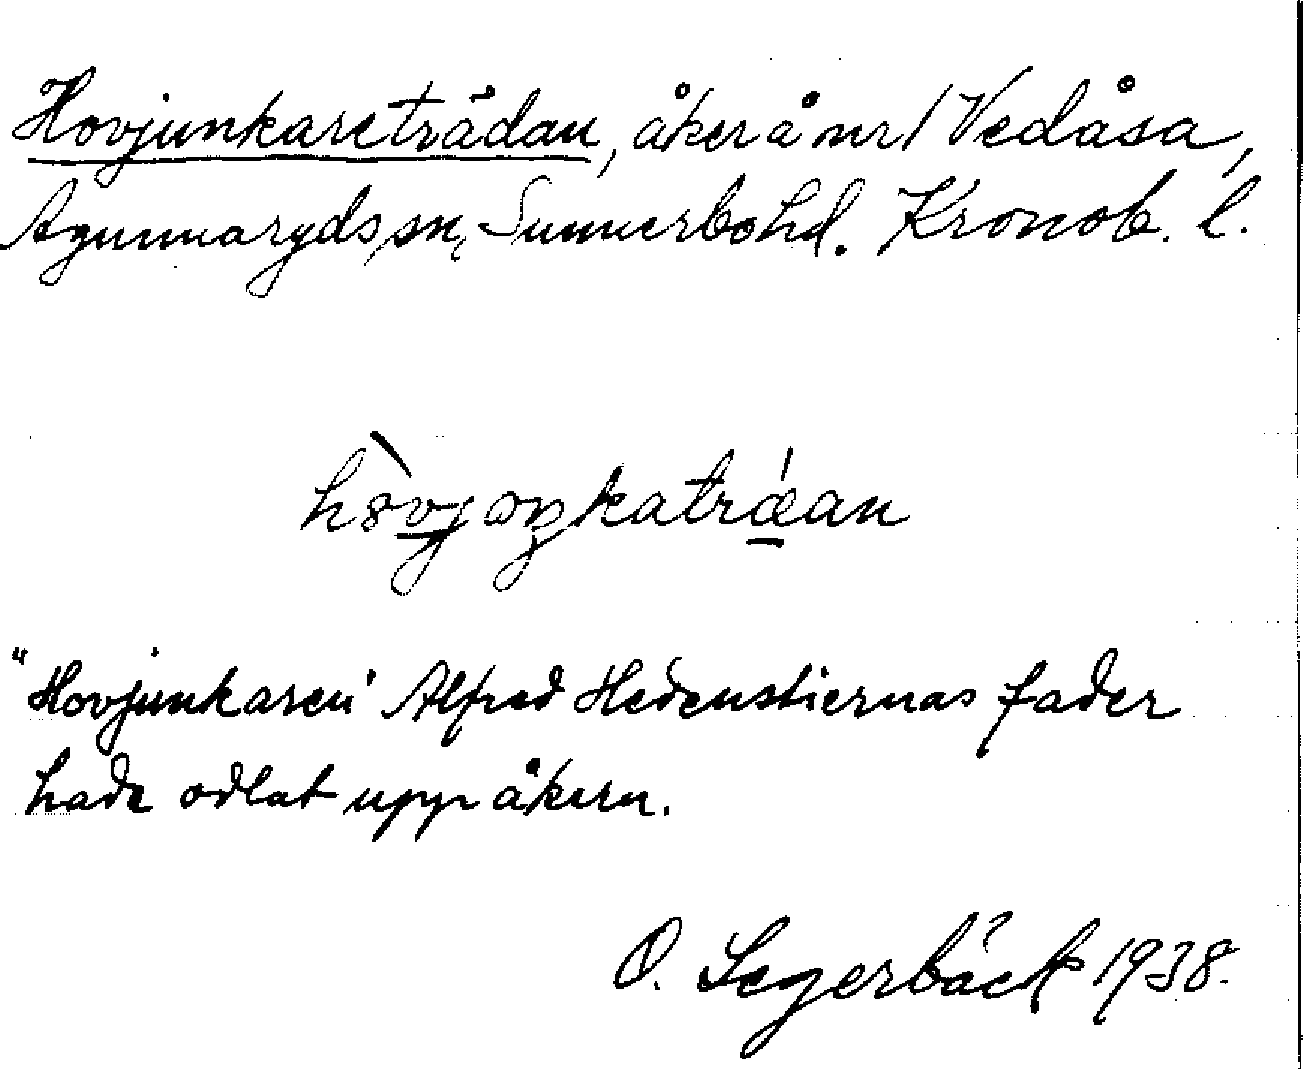 Hovjunkareträdan, åker å nr 1 Vedåsa,
Agunnaryds sn, Sunnerbo hd. Kronob. l.
"Hovjunkaren" Alfred Hedenstiernas fader
hade odlat upp åkern.
O. Segerbäck 1938.